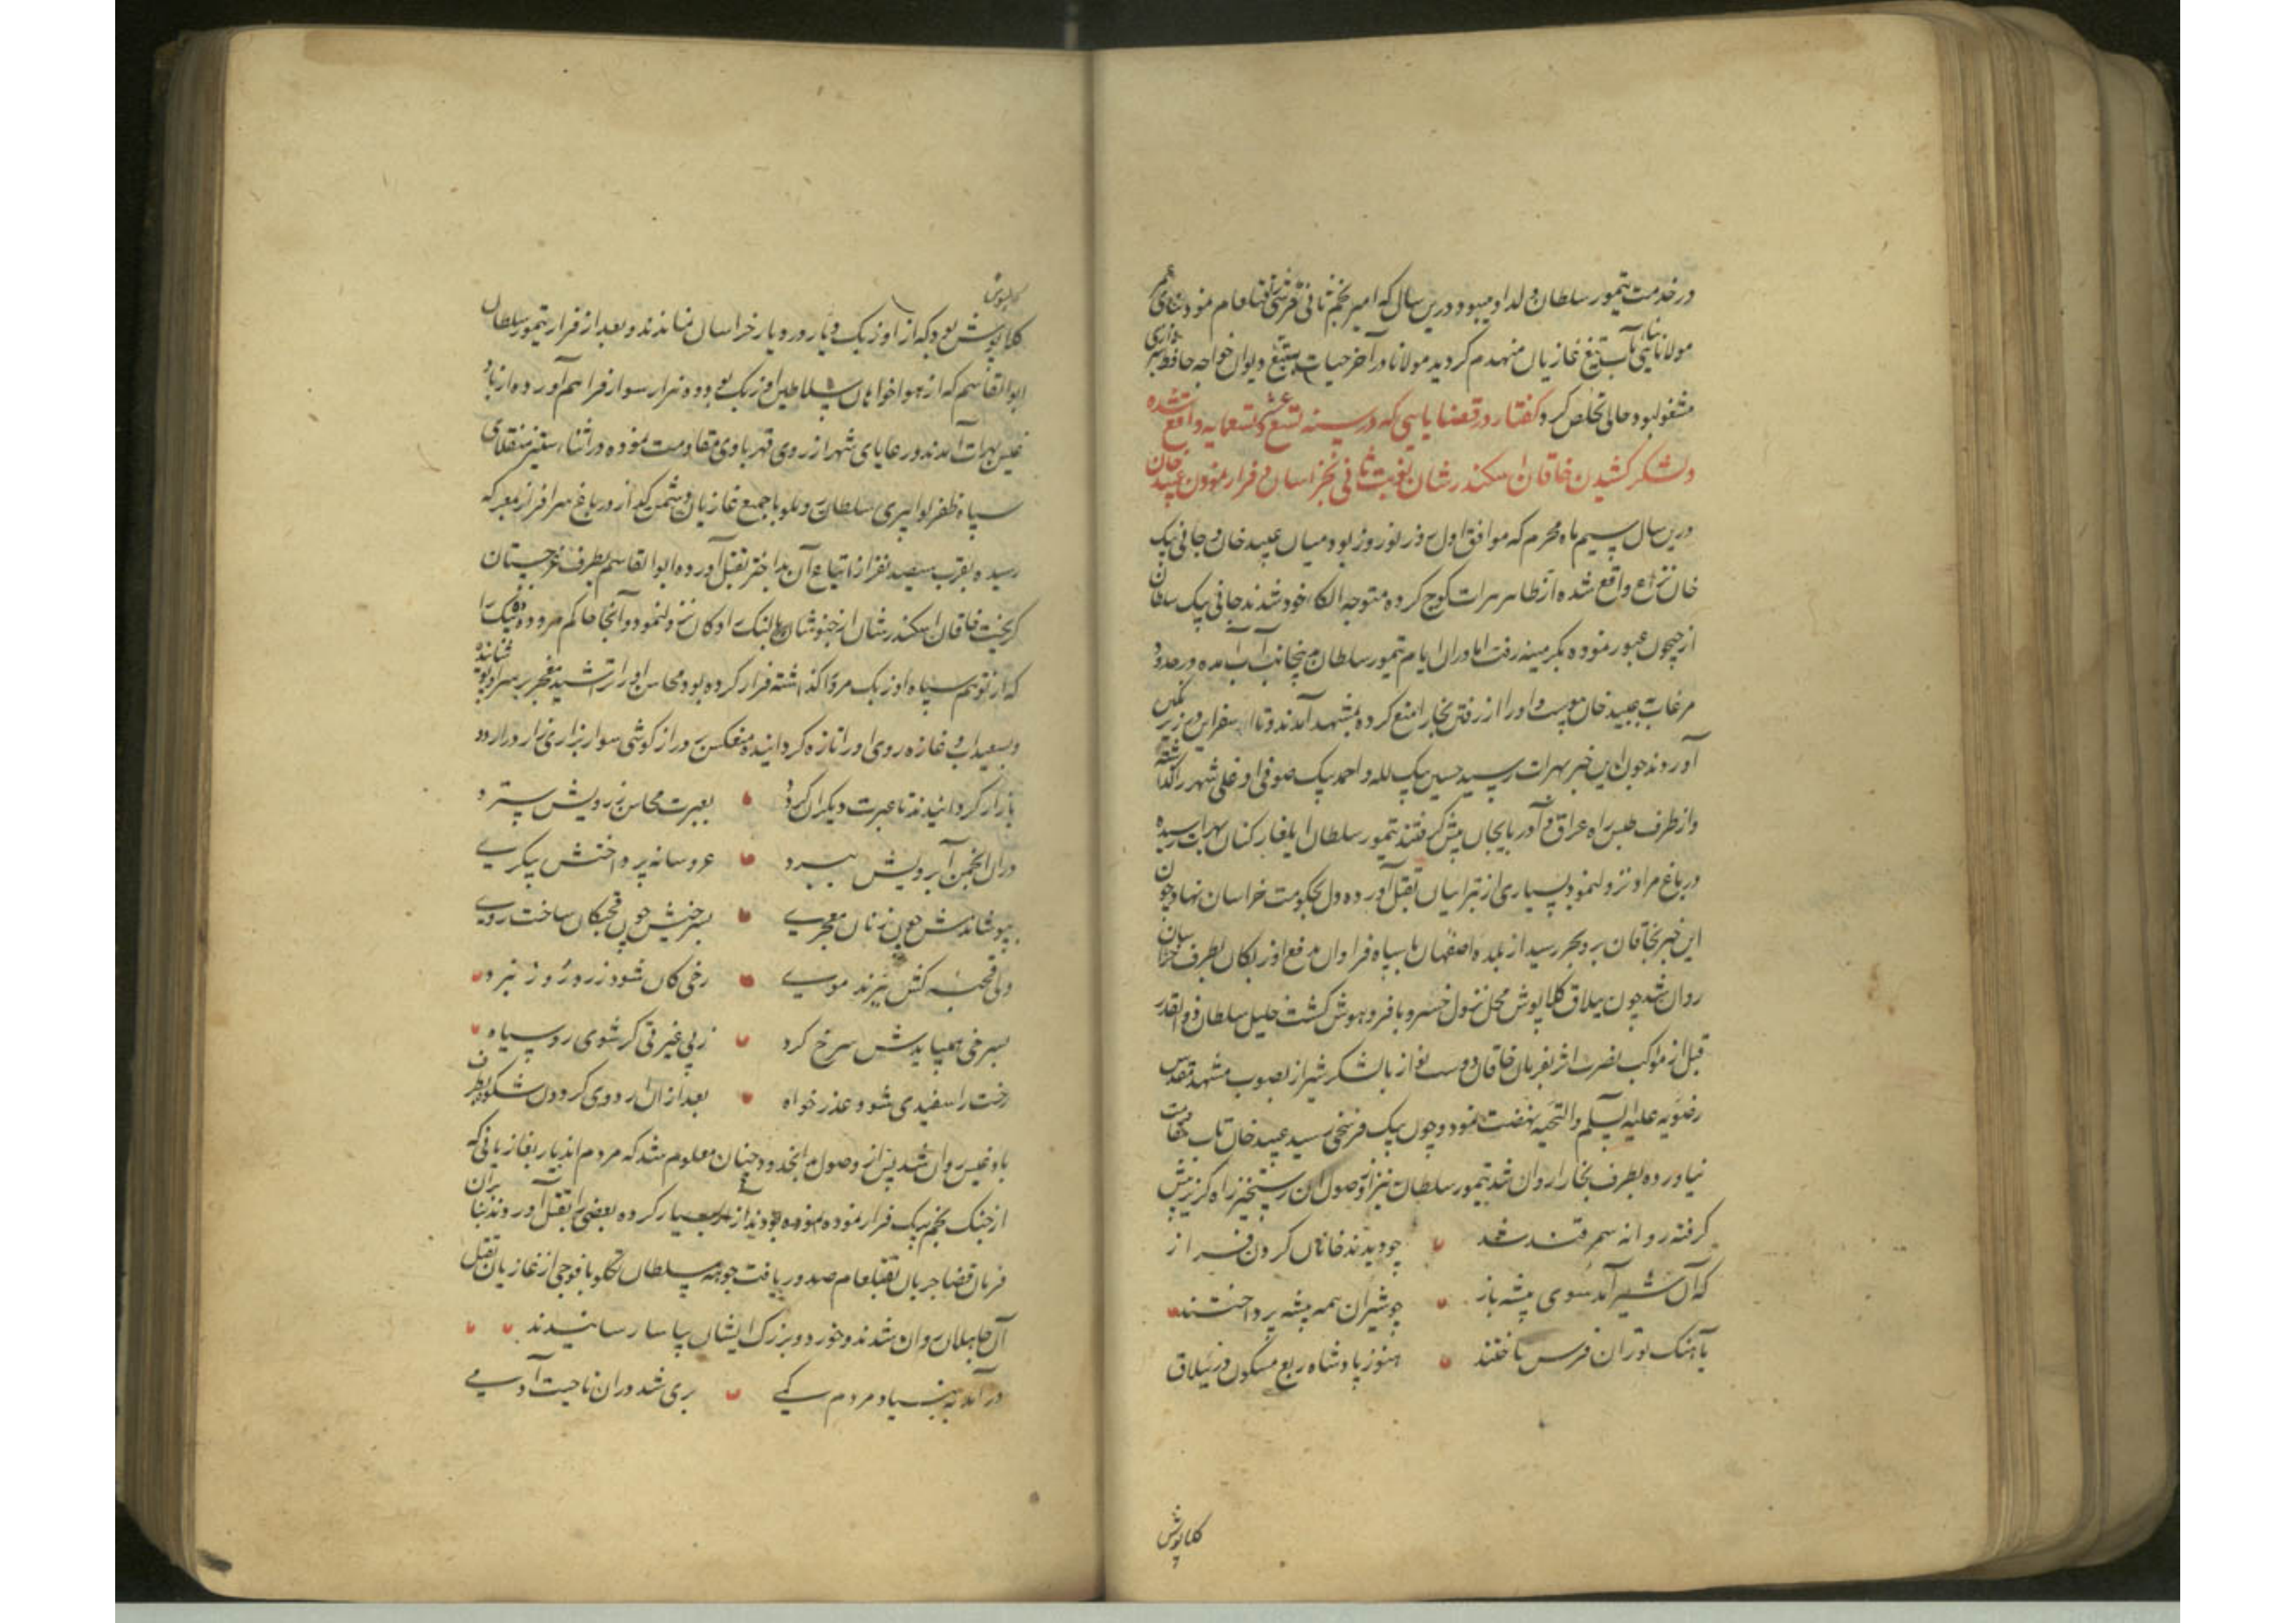 در خدمت تیمور سلطان ولد او میبود درین سال که امیر نجم ثانی قرشی را قتل عام نمود بنای عمر
مولانا بنائی بآب تیغ غازیان منهدم کردید مولانا در آخر حیات بتتبع دیوان خواجه حافظ شیرازی
مشغول بود حالی تخلص کرد کفتار در قضایایی که در سنه تسع عشر و تسعمایه واقع شده
و لشکر کشیدن خاقان اسکندر شان نوبت ثانی بخراسان و فرار نمودن عبید خان
درین سال سیم ماه محرم که موافق اول روز نوروز بود میان عبید خان و جانی بیک
خان نزاع واقع شده از ظاهر هرات کوچ کرده متوجه الکاء خود شدند جانی بیک سلطان
از جیحون عبور نموده بکرمینه رفت اما دران ایام تیمور سلطان بجانب آب آمده در حدود
مرغاب بعبید خان پیوست و اورا از رفتن بخارا منع کرده بمشهد آمدند و تا اسفراین در زیر نکین
آوردند چون این خبر بهرات رسید حسین بیک لله و احمد بیک صوفی اوغلی شهر را کذاشته
و از طرف طبس راه عراق و آذربایجان پیش کرفتند تیمور سلطان ایلغار کنان بهرات رسیده
در باغ مراد نزول نمود و بسیاری از تبرائیان بقتل آورده دل بحکومت خراسان نهاد و چون
این خبر بخاقان بر و بحر رسید از بلده اصفهان با سپاه فراوان بدفع اوزبکان بطرف خراسان
روان شد چون ییلاق کلاپوش محل نزول خسرو با فر و هوش کشت خلیل سلطان ذوالقدر
قبل از موکب نصرت اثر بفرمان خاقان دوست نواز با لشکر شیراز بصوب مشهد مقدس
رضویه علیه السلم و التحیه نهضت نمود و چون پیک فرخی رسید عبید خان تاب مقاومت
نیاورده بطرف بخارا روان شد تیمور سلطان نیز از وصول ان رستخیز راه کریز پیش
کرفته روانه سمرقند شد چو دیدند خانان کردن فراز
که آن شیر آمد سوی بیشه باز چو شیران همه بیشه پرداختند
بآهنک توران فرس تاختند هنوز پادشاه ربع مسکون در ییلاق
کلاپوش
کلاپوش بود که از اوزبک دیار در دیار خراسان نماندند و بعد از فرار تیمور سلطان
ابوالقاسم که از هواخواهان سلاطین اوزبک بود دو هزار سوار فراهم آورده از باد
غیس بهرات آمدند و رعایای شهر از روی قهر با وی مقاومت نموده در اثناء ستیز منقلای
سپاه ظفر لوا پیری سلطان روملو با جمیع غازیان دشمن کداز در باغ سرافراز بمعرکه
رسیده بقرب سیصد نفر از اتباع آن بداختر بقتل آورده ابوالقاسم بطرف غرجستان
کریخت خاقان اسکندر شان از خبوشان بالنک رادکان نزول نمود و آنجا حاکم مرو دده بیک را
که از توهم سپاه اوزبک مرو را کذاشته فرار کرده بود محاسن او را تراشیده معجر بر سر او پوشانیده
و بسفیداب و غازه روی او را تازه کردانیده منعکس بر دراز کوشی سوار بزاری زار در اردو
بازار کردانیدند تا عبرت دیکران کردد بعبرت محاسن ز رویش سترد
دران انجمن آبرویش ببرد عروسانه پرداختش پیکری
بپوشاندش چون زنان معجری بسرخیش چون قحبکان ساخت روی
ولی قحبه کش نبرند موی رخی کان شود زرد روز نبرد
بسرخی همیبایدش سرخ کرد ز بی غیرتی کر شوی رو سیاه
رخت را سفیدی شود عذر خواه بعد ازان اردوی کردون شکوه بطرف
بادغیس روان شد پس از وصول بدانحدود چنان معلوم شد که مردم اندیار بغازیانی که
از جنک نجم بیک فرار نموده بودند آزار بسیار کرده بعضی را بقتل آوردند بنابران
فرمان قضا جریان بقتل عام صدور یافت چوهه سلطان تکلو با فوجی از غازیان بقتل
آن جاهلان روان شدند و خورد و بزرک ایشان بیاسا رسانیدند
در آمد به بنیاد مردم کمی بری شد دران ناحیت آدمی